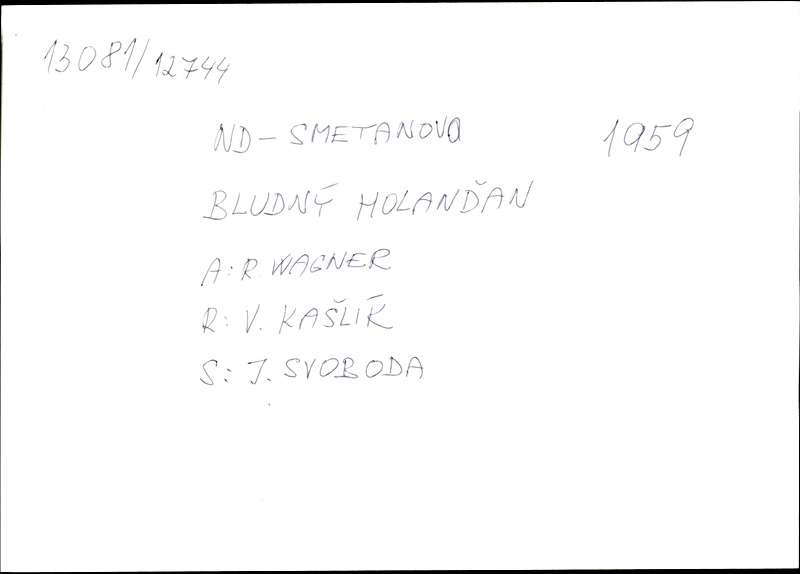 13081/12744
ND - SMETANOVO 1959
BLUDNÝ HOLANĎAN
A: R. WAGNER
R: V. KAŠLÍK
S: J. SVOBODA